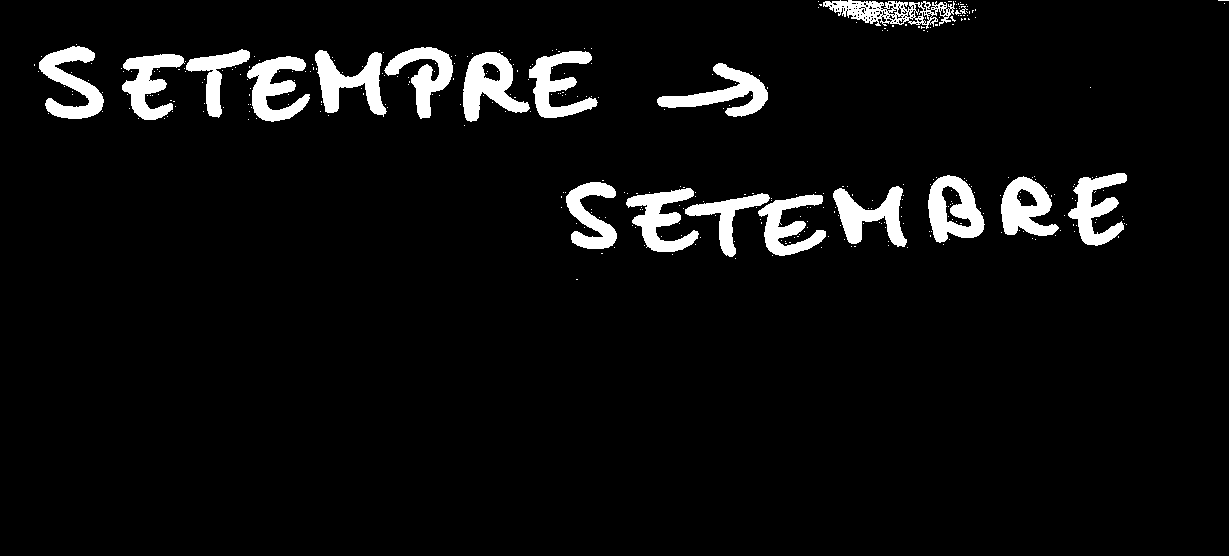 SETEMPRE →
SETEMBRE